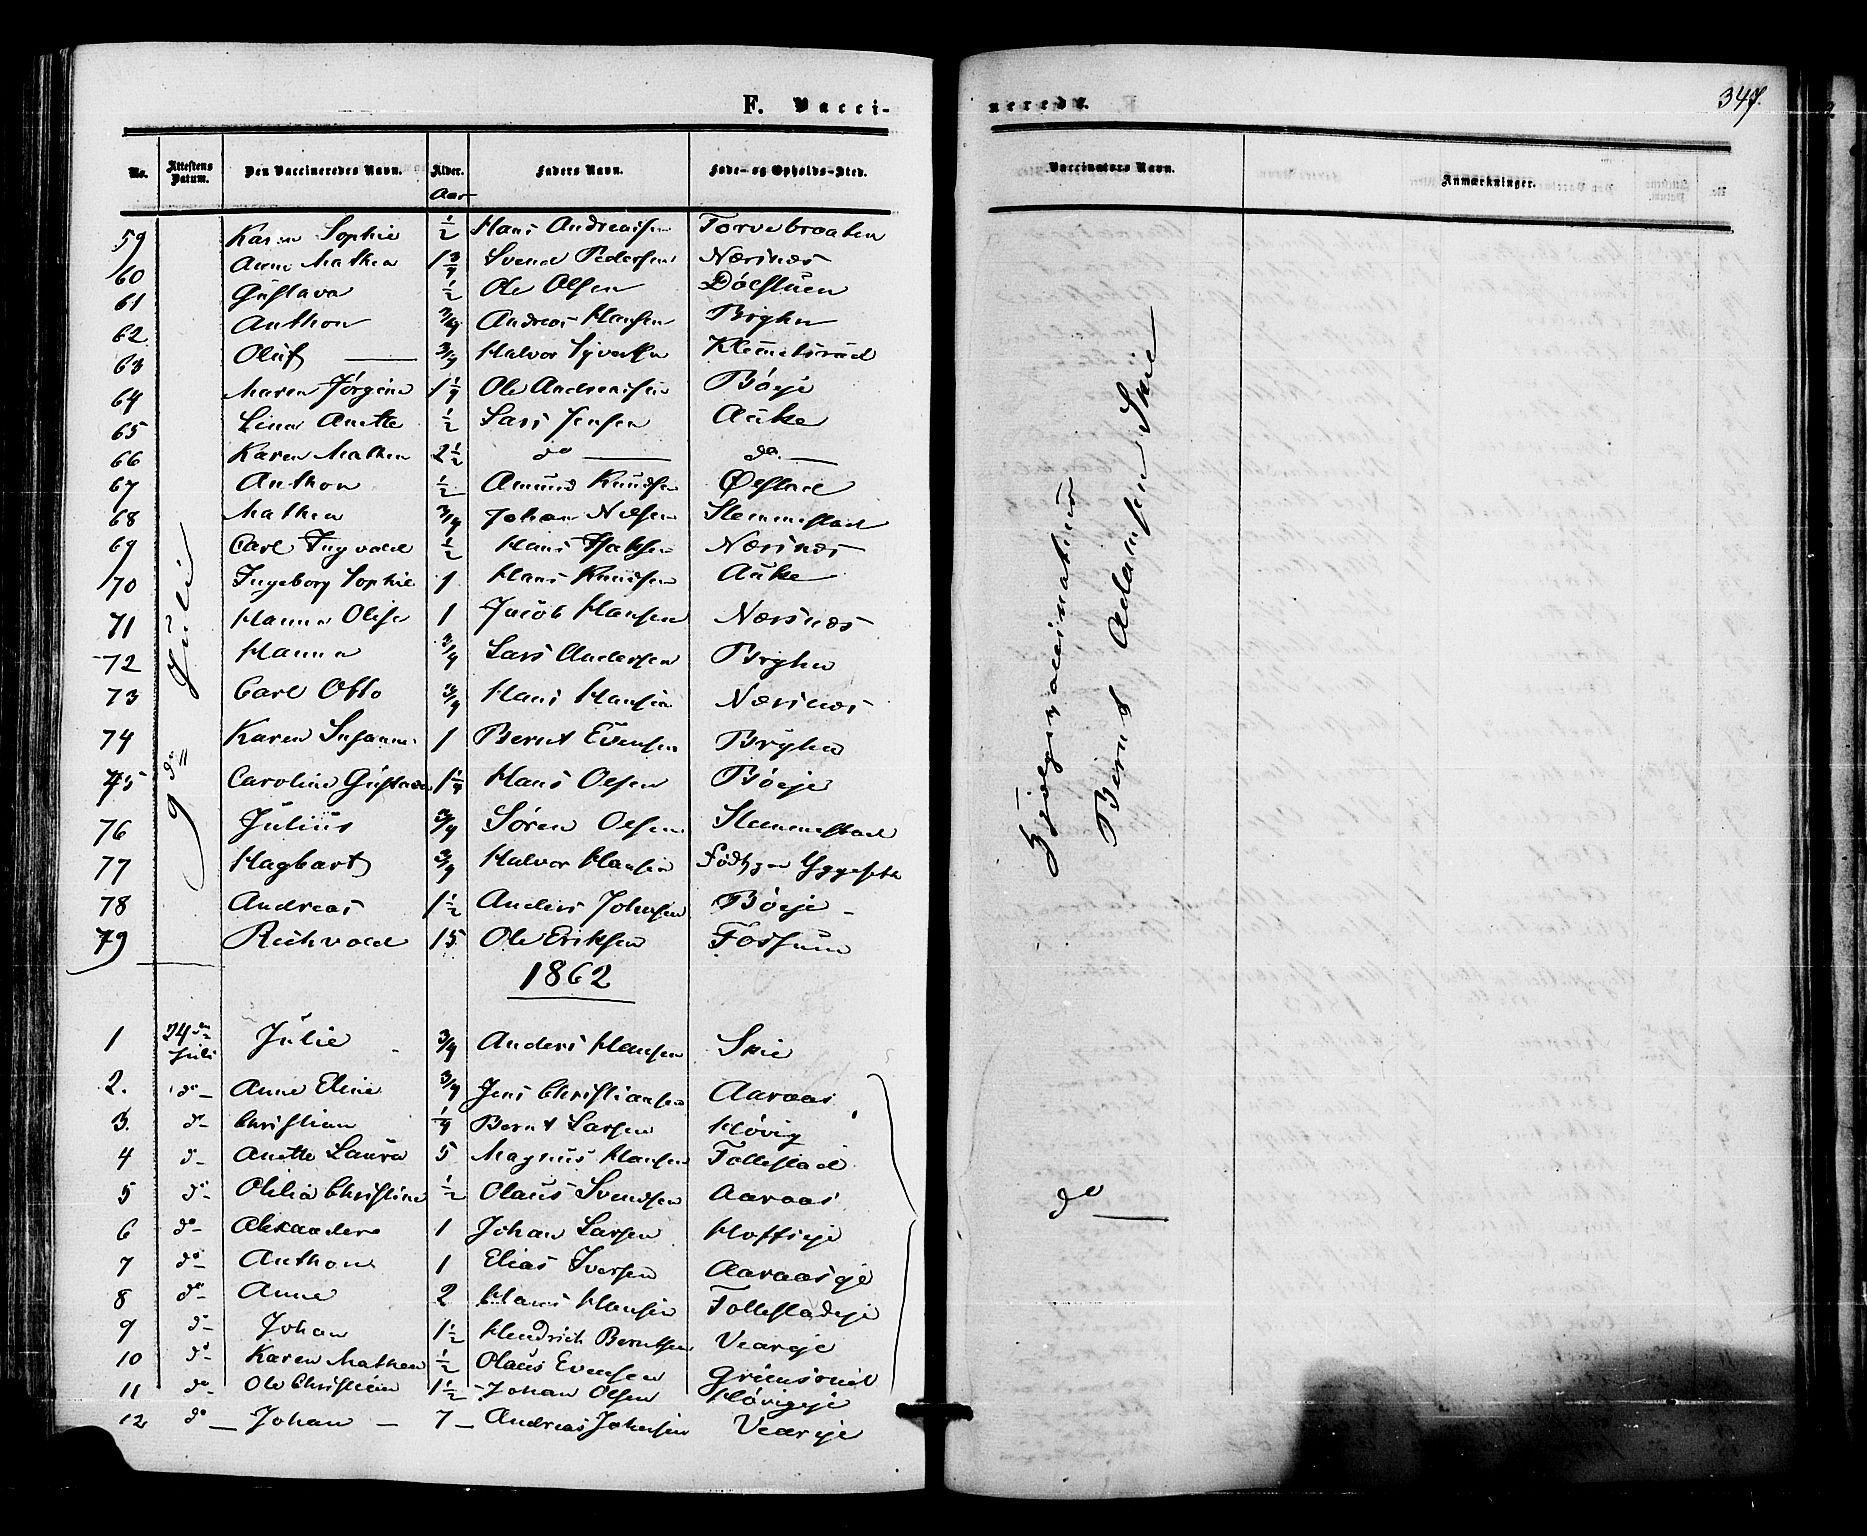 F. Vacci-
No. Attestens Datum. Den Vaccineredes Navn. Alder. Faders Navn. Føde- og Opholds-Sted.
Aar
59 Karen Sophie 1/2 Hans Andreassen Torvebraaten
60 Anne Mathea 1 3/4 Svend Pedersen Næsnæs
61 Gustava 1/2 Ole Olsen Döelstuen
62 Anthon 3/4 Andreas Hansen Bryhn
63 Oluf 3/4 Halvor Syversen Klemetsrud
64 Maren Jørgine 1 1/4 Ole Andreassen Böeje
65 Lina Anette 1/2 Lars Jensen Auke
66 Karen Mathea 2 1/2 do do
67 Anthon 1/2 Amund Knudsen Øfstad
68 Mathea 3/4 Johan Nilsen Slemmestad
69 Carl Ingvald 1/2 Hans Isaksen Næsnæs
70 Ingeborg Sophie 1 Hans Knudsen Auke
71 Hanna Olise 1 Jacob Hansen Næsnæs
72 Hanna 3/4 Lars Andersen Bryhn
73 Carl Otto 3/4 Hans Hansen Næsnæs
74 Karen Susanne 1 Bernt Evensen Bryhn
75 Caroline Gustava 1 1/4 Hans Olsen Böeje
76 Julius 3/4 Søren Olsen Slemmestad
77 Hagbart 3/4 Halvor Hansen Födt paa Yggeseth
78 Andreas 1 1/2 Anders Johnsen Böeje
79 Richvald 15 Ole Eriksen Fossum
9de Juli
1862
1 24de Juli Julie 3/4 Anders Hansen Skie
2. do Anne Eline 3/4 Jens Christiansen Aaraas
3. do Christian 1/4 Bernt Larsen Høvig
4 do Anette Laura 5 Magnus Hansen Follestad
5 do Otilia Christine 1/2 Olaus Svendsen Aaraas
6 do Alexander 1 Johan Larsen Hoffseje
7 do Anthon 1 Elias Iversen Aaraaseje
8 do Anne 2 Hans Hansen Follestadeje
9 do Johan 1 1/2 Hendrich Berntsen Veareje
10 do Karen Mathea 1/2 Olaus Evensen Grimsrud
11 do Ole Christian 1 1/2 Johan Olsen Høvigeje
12 do Johan 7 Andreas Johnsen Veareje
nerede.
347.
Vaccinators Navn. Anmærkninger.
Hjælpevaccinateur
Bernt Adamsen Skie
do